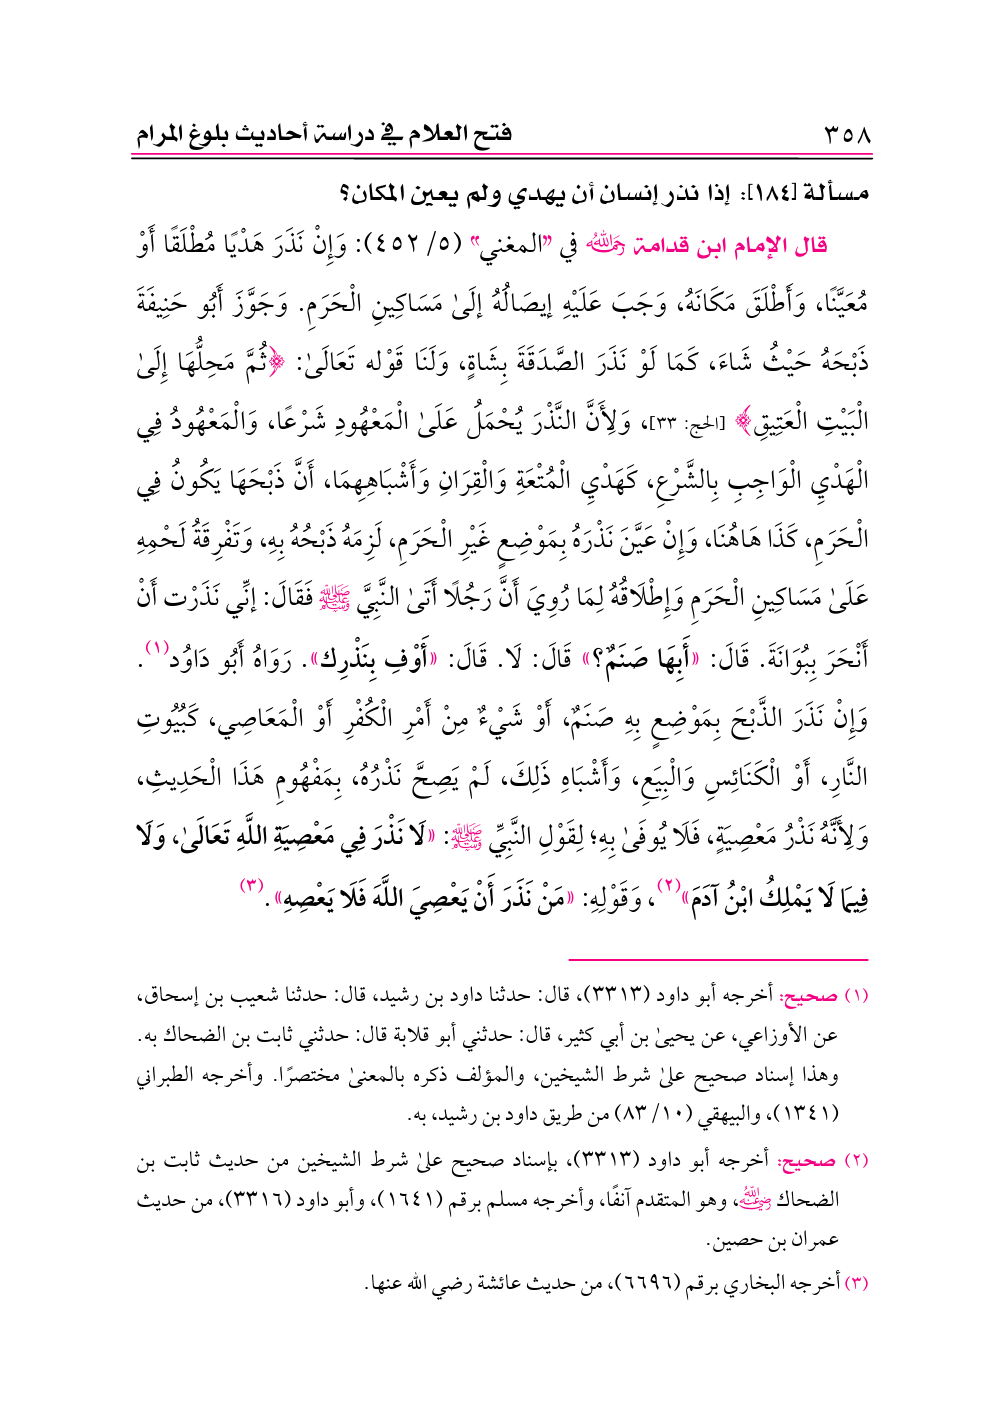 ٣٥٨ فتح العلام في دراسة أحاديث بلوغ المرام
مسألة [١٨٤]: إذا نذر إنسان أن يهدي ولم يعين المكان؟
قال الإمام ابن قدامة رحمه الله في "المغني" (٥/ ٤٥٢): وَإِنْ نَذَرَ هَدْيًا مُطْلَقًا أَوْ
مُعَيَّنًا، وَأَطْلَقَ مَكَانَهُ، وَجَبَ عَلَيْهِ إيصَالُهُ إلَىٰ مَسَاكِينِ الْحَرَمِ. وَجَوَّزَ أَبُو حَنِيفَةَ
ذَبْحَهُ حَيْثُ شَاءَ، كَمَا لَوْ نَذَرَ الصَّدَقَةَ بِشَاةٍ، وَلَنَا قَوْله تَعَالَىٰ: ﴿ثُمَّ مَحِلُّهَا إِلَىٰ
الْبَيْتِ الْعَتِيقِ﴾ [الحج: ٣٣]، وَلِأَنَّ النَّذْرَ يُحْمَلُ عَلَىٰ الْمَعْهُودِ شَرْعًا، وَالْمَعْهُودُ فِي
الْهَدْيِ الْوَاجِبِ بِالشَّرْعِ، كَهَدْيِ الْمُتْعَةِ وَالْقِرَانِ وَأَشْبَاهِهِمَا، أَنَّ ذَبْحَهَا يَكُونُ فِي
الْحَرَمِ، كَذَا هَاهُنَا، وَإِنْ عَيَّنَ نَذْرَهُ بِمَوْضِعٍ غَيْرِ الْحَرَمِ، لَزِمَهُ ذَبْحُهُ بِهِ، وَتَفْرِقَةُ لَحْمِهِ
عَلَىٰ مَسَاكِينِ الْحَرَمِ وَإِطْلَاقُهُ لِمَا رُوِيَ أَنَّ رَجُلًا أَتَىٰ النَّبِيَّ ﷺ فَقَالَ: إنِّي نَذَرْت أَنْ
أَنْحَرَ بِبُوَانَةَ. قَالَ: «أَبِهَا صَنَمٌ؟» قَالَ: لَا. قَالَ: «أَوْفِ بِنَذْرِك». رَوَاهُ أَبُو دَاوُد(١).
وَإِنْ نَذَرَ الذَّبْحَ بِمَوْضِعٍ بِهِ صَنَمٌ، أَوْ شَيْءٌ مِنْ أَمْرِ الْكُفْرِ أَوْ الْمَعَاصِي، كَبُيُوتِ
النَّارِ، أَوْ الْكَنَائِسِ وَالْبِيَعِ، وَأَشْبَاهِ ذَلِكَ، لَمْ يَصِحَّ نَذْرُهُ، بِمَفْهُومِ هَذَا الْحَدِيثِ،
وَلِأَنَّهُ نَذْرُ مَعْصِيَةٍ، فَلَا يُوفَىٰ بِهِ؛ لِقَوْلِ النَّبِيِّ ﷺ: «لَا نَذْرَ فِي مَعْصِيَةِ اللَّهِ تَعَالَىٰ، وَلَا
فِيمَا لَا يَمْلِكُ ابْنُ آدَمَ»(٢)، وَقَوْلِهِ: «مَنْ نَذَرَ أَنْ يَعْصِيَ اللَّهَ فَلَا يَعْصِهِ».(٣)
(١) صحيح: أخرجه أبو داود (٣٣١٣)، قال: حدثنا داود بن رشيد، قال: حدثنا شعيب بن إسحاق،
عن الأوزاعي، عن يحيىٰ بن أبي كثير، قال: حدثني أبو قلابة قال: حدثني ثابت بن الضحاك به.
وهذا إسناد صحيح علىٰ شرط الشيخين، والمؤلف ذكره بالمعنىٰ مختصرًا. وأخرجه الطبراني
(١٣٤١)، والبيهقي (١٠/ ٨٣) من طريق داود بن رشيد، به.
(٢) صحيح: أخرجه أبو داود (٣٣١٣)، بإسناد صحيح علىٰ شرط الشيخين من حديث ثابت بن
الضحاك رضي الله عنه، وهو المتقدم آنفًا، وأخرجه مسلم برقم (١٦٤١)، وأبو داود (٣٣١٦)، من حديث
عمران بن حصين.
(٣) أخرجه البخاري برقم (٦٦٩٦)، من حديث عائشة رضي الله عنها.